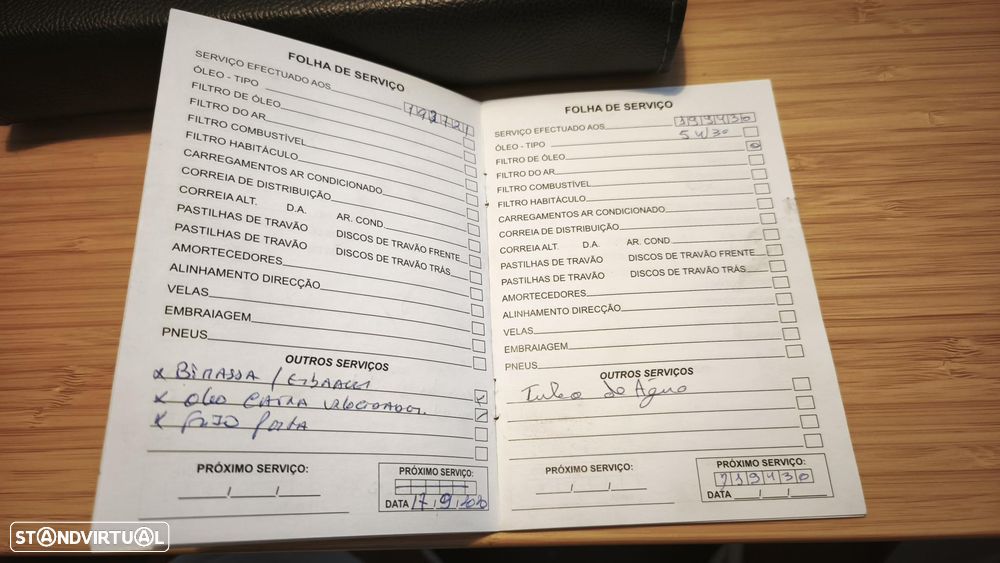 FOLHA DE SERVIÇO
SERVIÇO EFECTUADO AOS
ÓLEO - TIPO
FILTRO DE ÓLEO
FILTRO DO AR
FILTRO COMBUSTÍVEL
FILTRO HABITÁCULO
CARREGAMENTOS AR CONDICIONADO
CORREIA DE DISTRIBUIÇÃO
CORREIA ALT. D.A. AR. COND
PASTILHAS DE TRAVÃO DISCOS DE TRAVÃO FRENTE
PASTILHAS DE TRAVÃO DISCOS DE TRAVÃO TRÁS
AMORTECEDORES
ALINHAMENTO DIRECÇÃO
VELAS
EMBRAIAGEM
PNEUS
OUTROS SERVIÇOS
x BIMASSA /
x Óleo CAIXA
x porta
PRÓXIMO SERVIÇO:
PRÓXIMO SERVIÇO:
DATA 17, 9, 20
FOLHA DE SERVIÇO
SERVIÇO EFECTUADO AOS 199430
ÓLEO - TIPO 5W30
FILTRO DE ÓLEO
FILTRO DO AR
FILTRO COMBUSTÍVEL
FILTRO HABITÁCULO
CARREGAMENTOS AR CONDICIONADO
CORREIA DE DISTRIBUIÇÃO
CORREIA ALT. D.A. AR. COND
PASTILHAS DE TRAVÃO DISCOS DE TRAVÃO FRENTE
PASTILHAS DE TRAVÃO DISCOS DE TRAVÃO TRÁS
AMORTECEDORES
ALINHAMENTO DIRECÇÃO
VELAS
EMBRAIAGEM
PNEUS
OUTROS SERVIÇOS
Tubo de Água
PRÓXIMO SERVIÇO:
PRÓXIMO SERVIÇO:
219430
DATA
STANDVIRTUAL